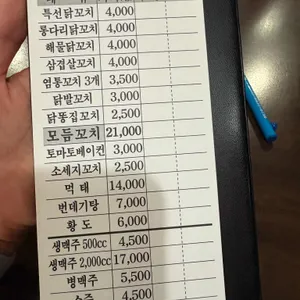 특선닭꼬치 4,000
롱다리닭꼬치 4,000
해물닭꼬치 4,000
삼겹살꼬치 4,000
염통꼬치 3개 3,500
닭발꼬치 3,000
닭똥집꼬치 2,500
모듬꼬치 21,000
토마토베이컨 3,000
소세지꼬치 2,500
먹 태 14,000
번데기탕 7,000
황 도 6,000
생맥주 500cc 4,500
생맥주 2,000cc 17,000
병맥주 5,500
소주 4,500